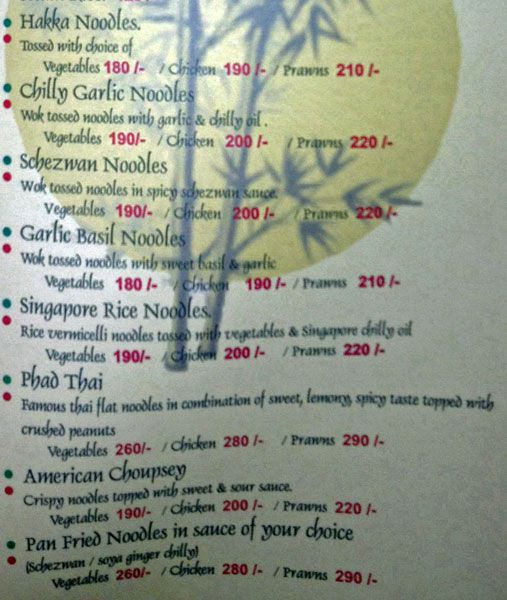 Hakka Noodles.
Tossed with choice of
Vegetables 180 /- / Chicken 190 /- / Prawns 210 /-
Chilly Garlic Noodles
Wok tossed noodles with garlic & chilly oil .
Vegetables 190/- / Chicken 200 /- / Prawns 220 /-
Schezwan Noodles
Wok tossed noodles in spicy schezwan sauce.
Vegetables 190/- / Chicken 200 /- / Prawns 220 /-
Garlic Basil Noodles
Wok tossed noodles with sweet basil & garlic
Vegetables 180 /- / Chicken 190 /- / Prawns 210 /-
Singapore Rice Noodles.
Rice vermicelli noodles tossed with vegetables & Singapore chilly oil
Vegetables 190/- / Chicken 200 /- / Prawns 220 /-
Phad Thai
Famous thai flat noodles in combination of sweet, lemony, spicy taste topped with
crushed peanuts
Vegetables 260/- / Chicken 280 /- / Prawns 290 /-
American Choupsey
Crispy noodles topped with sweet & sour sauce.
Vegetables 190/- / Chicken 200 /- / Prawns 220 /-
Pan Fried Noodles in sauce of your choice
(Schezwan / soya ginger chilly)
Vegetables 260/- / Chicken 280 /- / Prawns 290 /-